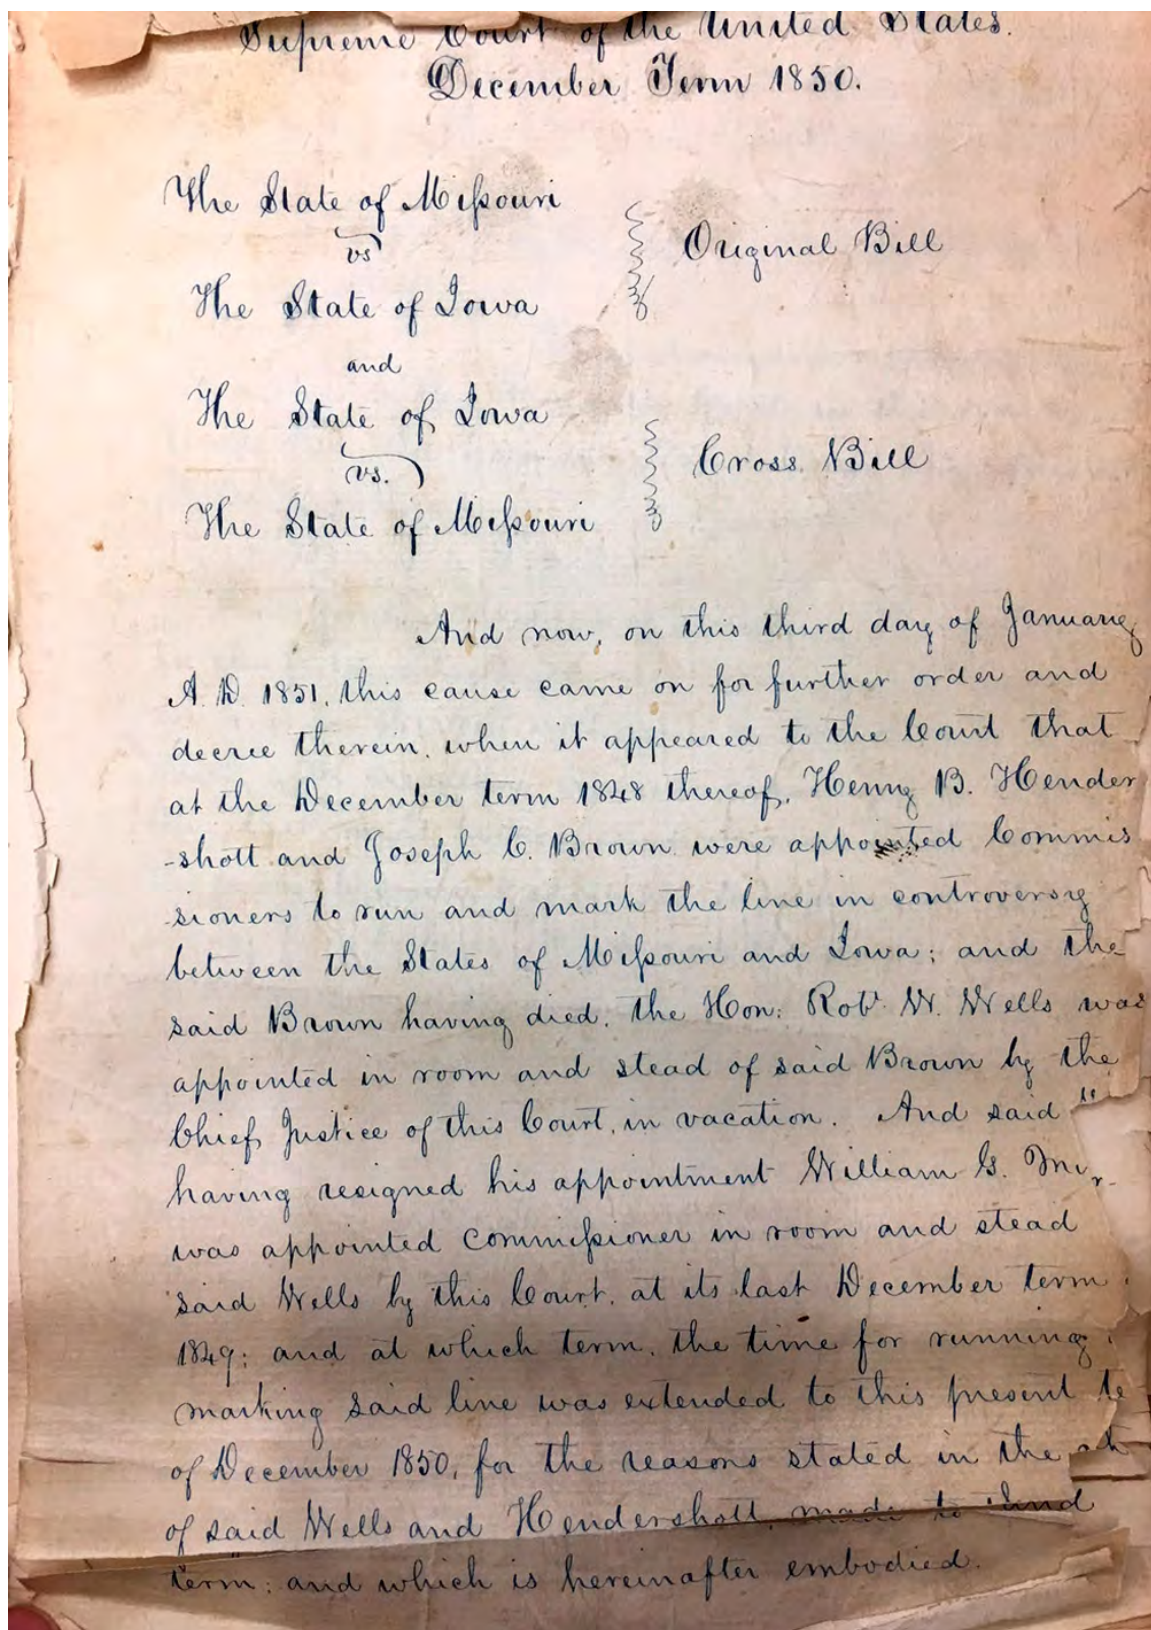 Supreme Court of the United States.
December Term 1850.
The State of Missouri
vs
Original Bill
The State of Iowa
and
The State of Iowa
vs.
Cross Bill
The State of Missouri
And now, on this third day of January
A. D. 1851, this cause came on for further order and
decree therein, when it appeared to the Court that
at the December term 1848 thereof, Henry B. Hender
-shott and Joseph C. Brown were appointed Commis
-sioners to run and mark the line in controversy
between the States of Missouri and Iowa; and the
said Brown having died, the Hon: Robt W. Wells was
appointed in room and stead of said Brown by the
Chief Justice of this Court, in vacation. And said
having resigned his appointment William G.
was appointed Commissioner in room and stead
said Wells by this Court, at its last December term
1849; and at which term, the time for running
marking said line was extended to this present te
of December 1850, for the reasons stated in the
of said Wells and Hendershott, made to
term; and which is hereinafter embodied.